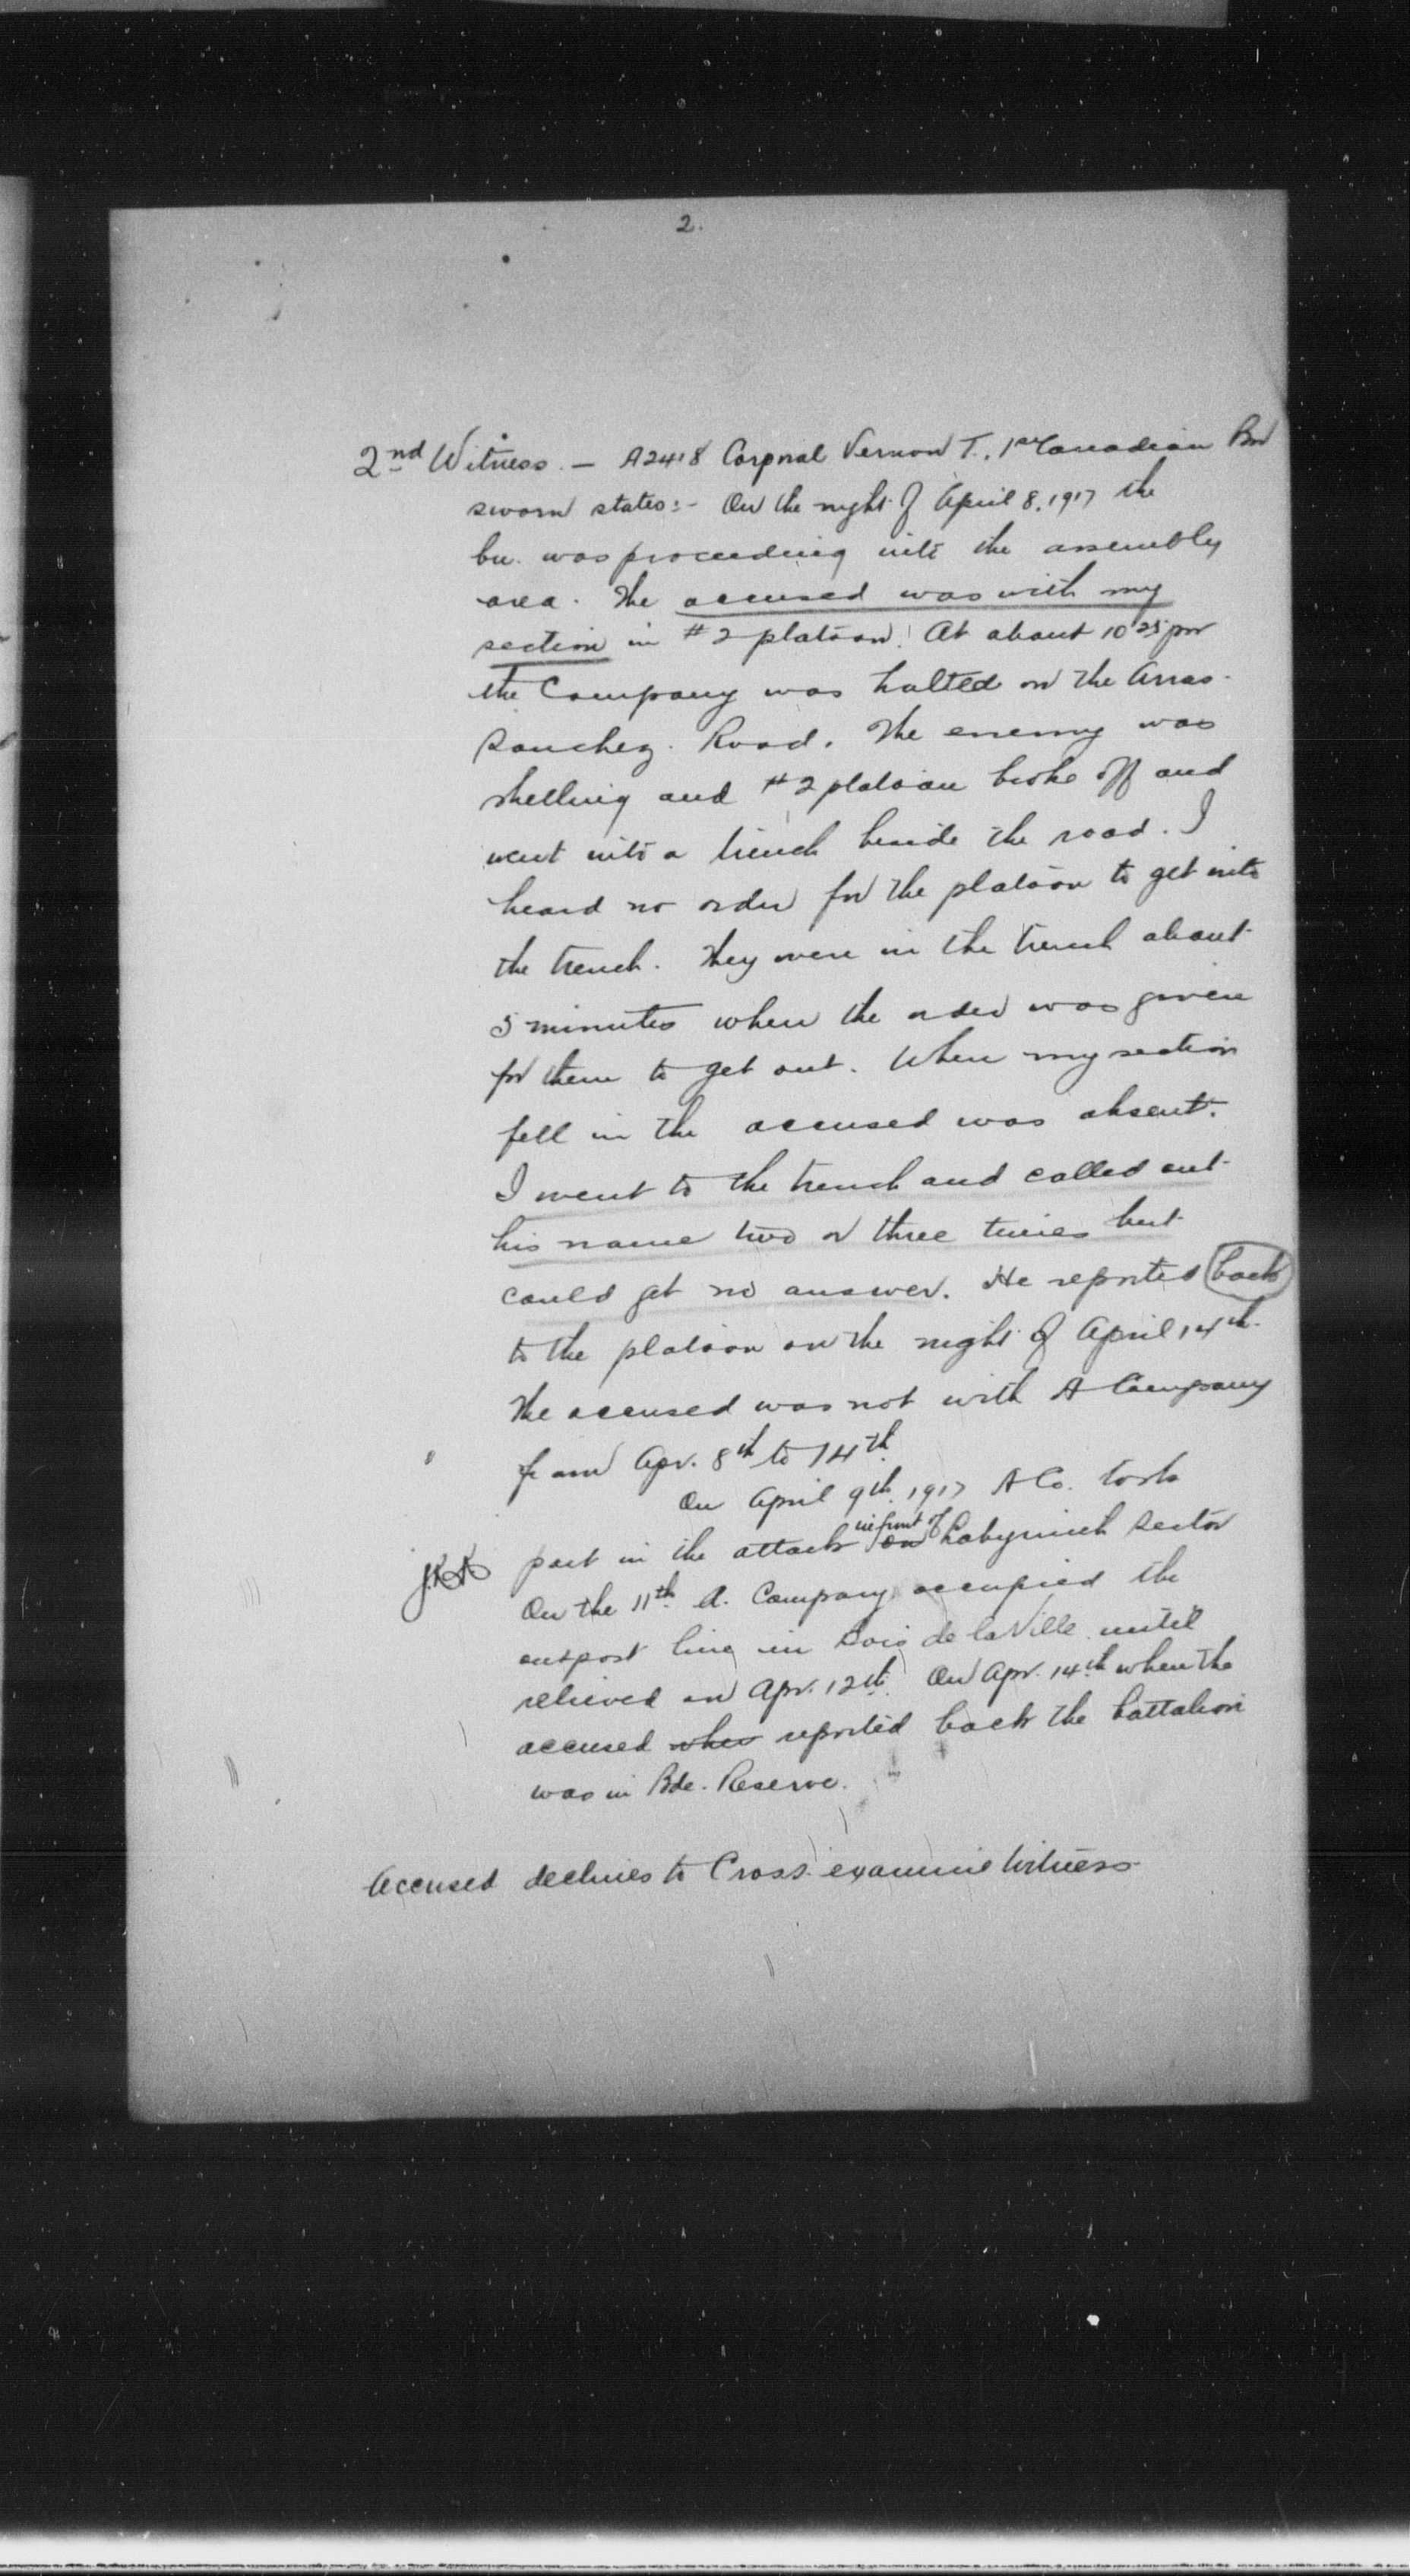 2.
2nd Witness. – A2418 Corporal Vernon T., 1st Canadian Bn
sworn states:- On the night of April 8, 1917 the
bn. was proceeding into the assembly
area. The accused was with my
section in #2 platoon. At about 10 25 pm
the Company was halted on the Arras-
Souchez. Road. The enemy was
shelling and #2 platoon broke off and
went into a trench beside the road. I
heard no order for the platoon to get into
the trench. They were in the trench about
5 minutes when the order was given
for them to get out. When my section
fell in the accused was absent.
I went to the trench and called out
his name two or three times but
could get no answer. He reported back
to the platoon on the night of April 14th.
The accused was not with A Company
from Apr. 8th to 14th.
On April 9th 1917 A Co. took
part in the attack on in front of Labyrinth Sector
On the 11th A. Company occupied the
outpost line in Bois de la Ville until
relieved on Apr. 12th. On Apr. 14th when the
accused when reported back the battalion
was in Bde. Reserve.
Accused declines to Cross-examine Witness.